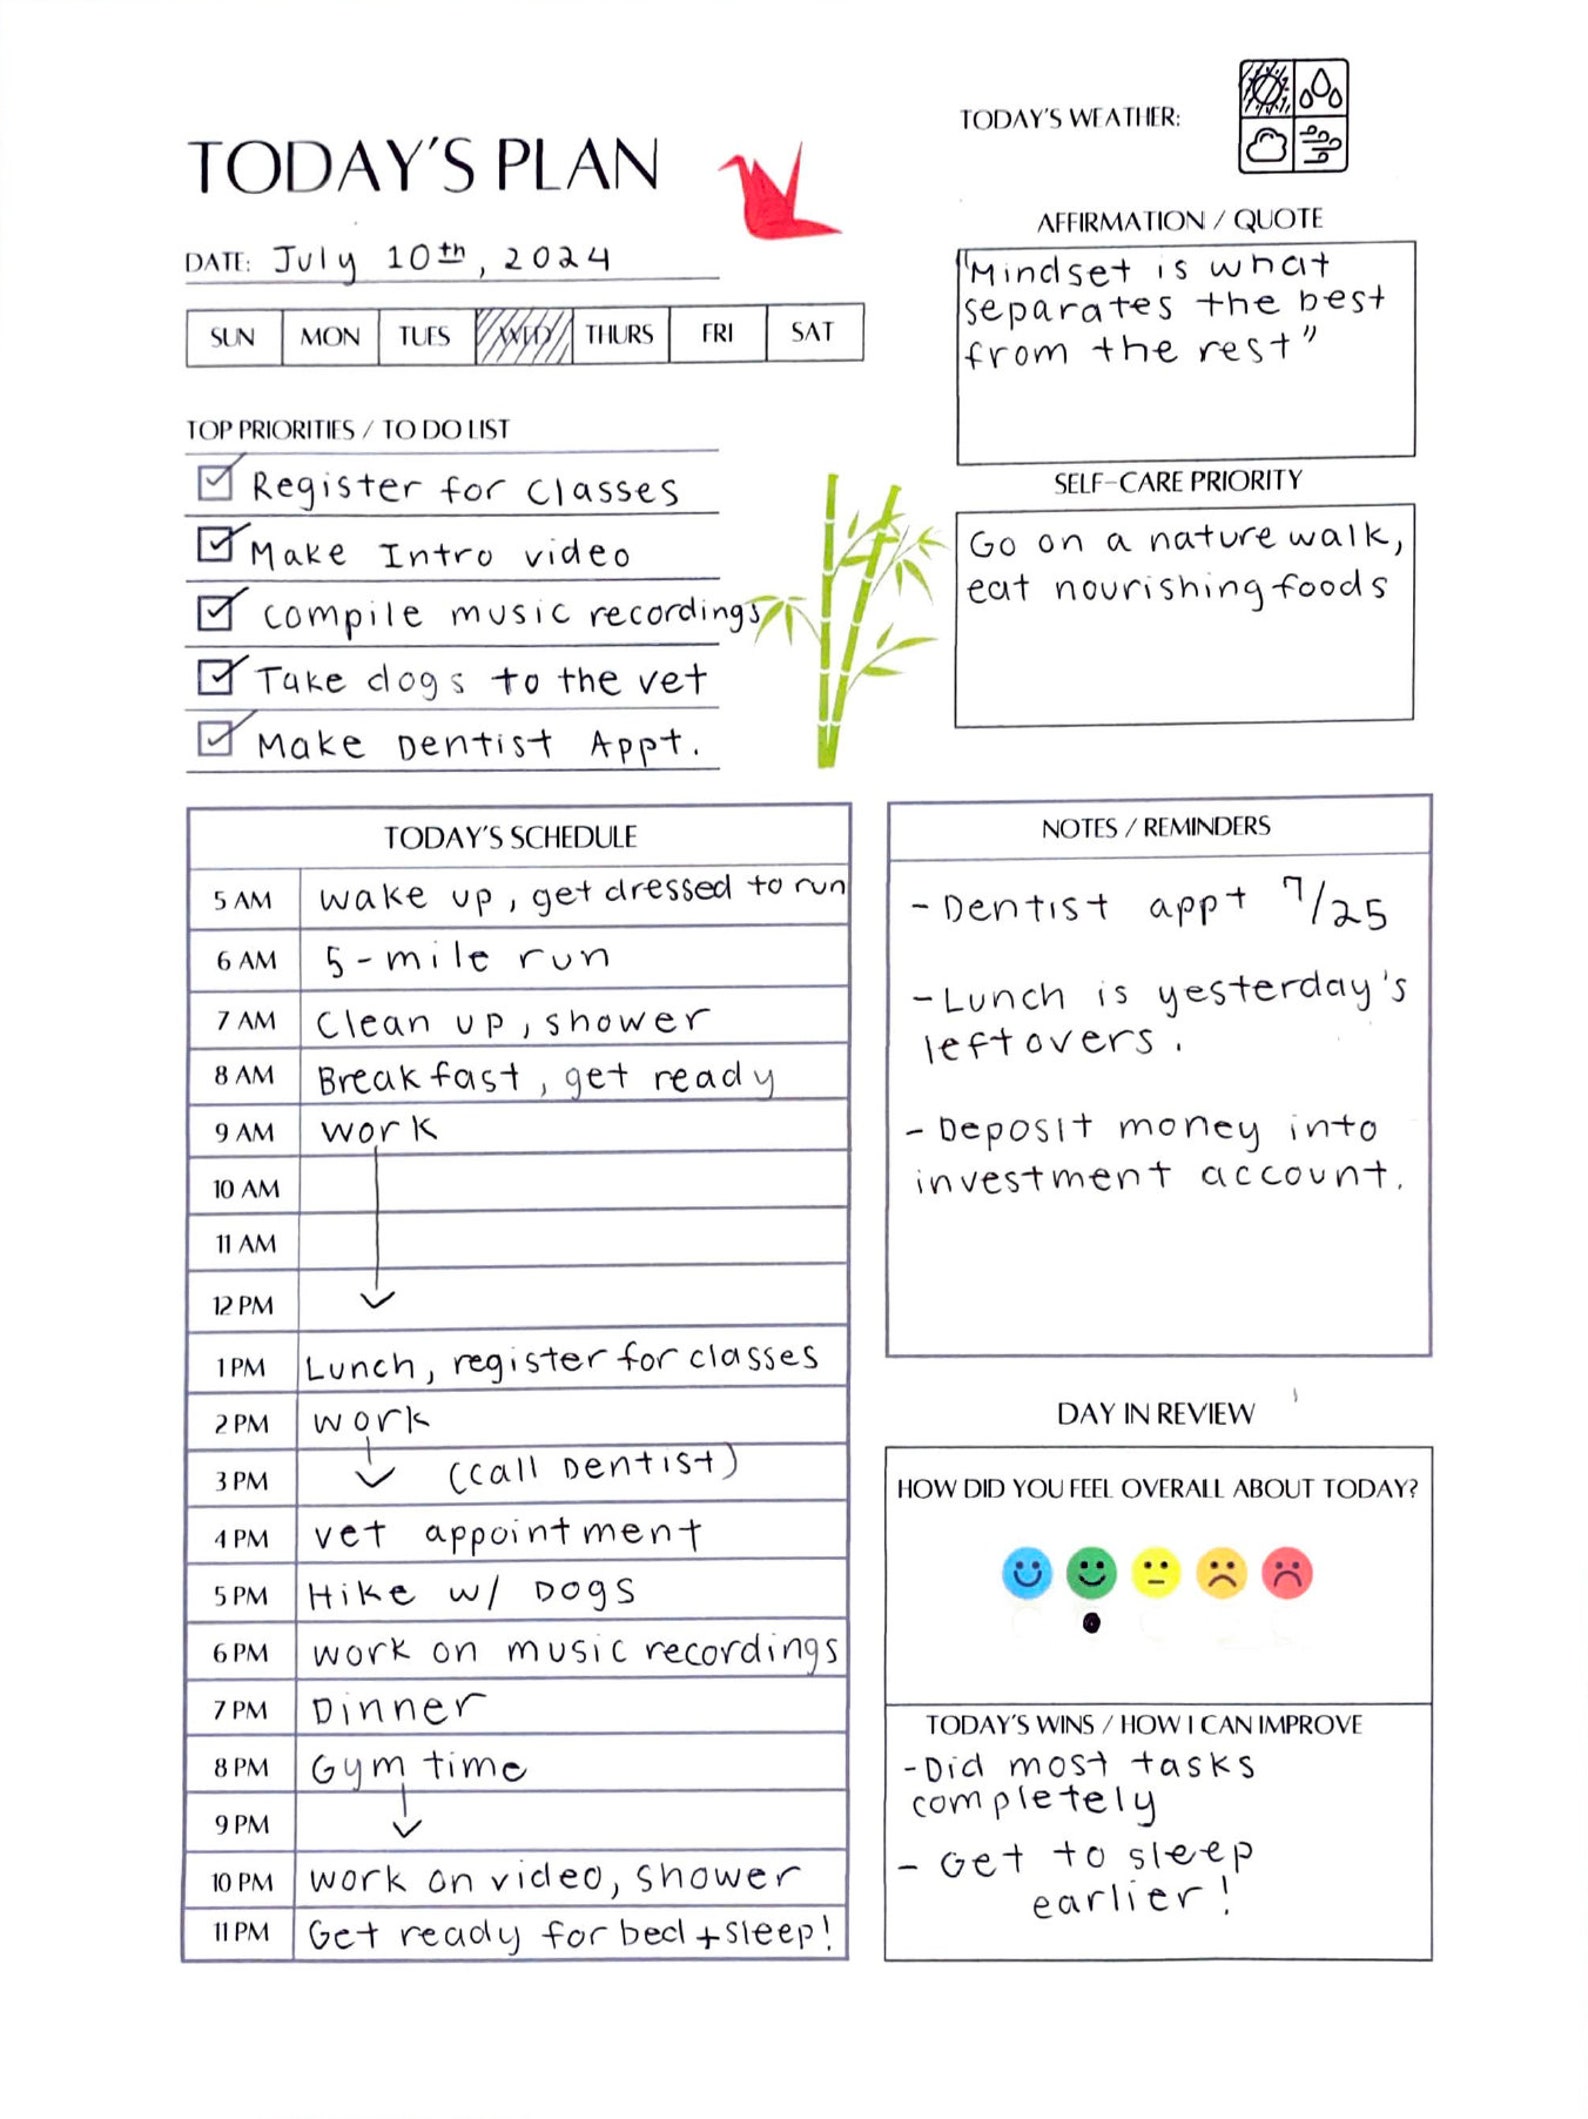 TODAY'S WEATHER:
TODAY'S PLAN
DATE: July 10th, 2024
SUN MON TUES WED THURS FRI SAT
AFFIRMATION / QUOTE
"Mindset is what
separates the best
from the rest"
TOP PRIORITIES / TO DO LIST
Register for classes
Make Intro video
compile music recordings
Take dogs to the vet
Make Dentist Appt.
SELF-CARE PRIORITY
Go on a nature walk,
eat nourishing foods
TODAY'S SCHEDULE
5 AM wake up, get dressed to run
6 AM 5-mile run
7 AM Clean up, shower
8 AM Breakfast, get ready
9 AM work
10 AM
11 AM
12 PM
1 PM Lunch, register for classes
2 PM work
3 PM (call Dentist)
4 PM vet appointment
5 PM Hike w/ DOGS
6 PM work on music recordings
7 PM Dinner
8 PM Gym time
9 PM
10 PM work on video, shower
11 PM Get ready for bed + sleep!
NOTES / REMINDERS
- Dentist appt 7/25
- Lunch is yesterday's
leftovers.
- Deposit money into
investment account.
DAY IN REVIEW
HOW DID YOU FEEL OVERALL ABOUT TODAY?
TODAY'S WINS / HOW I CAN IMPROVE
- Did most tasks
completely
- Get to sleep
earlier!